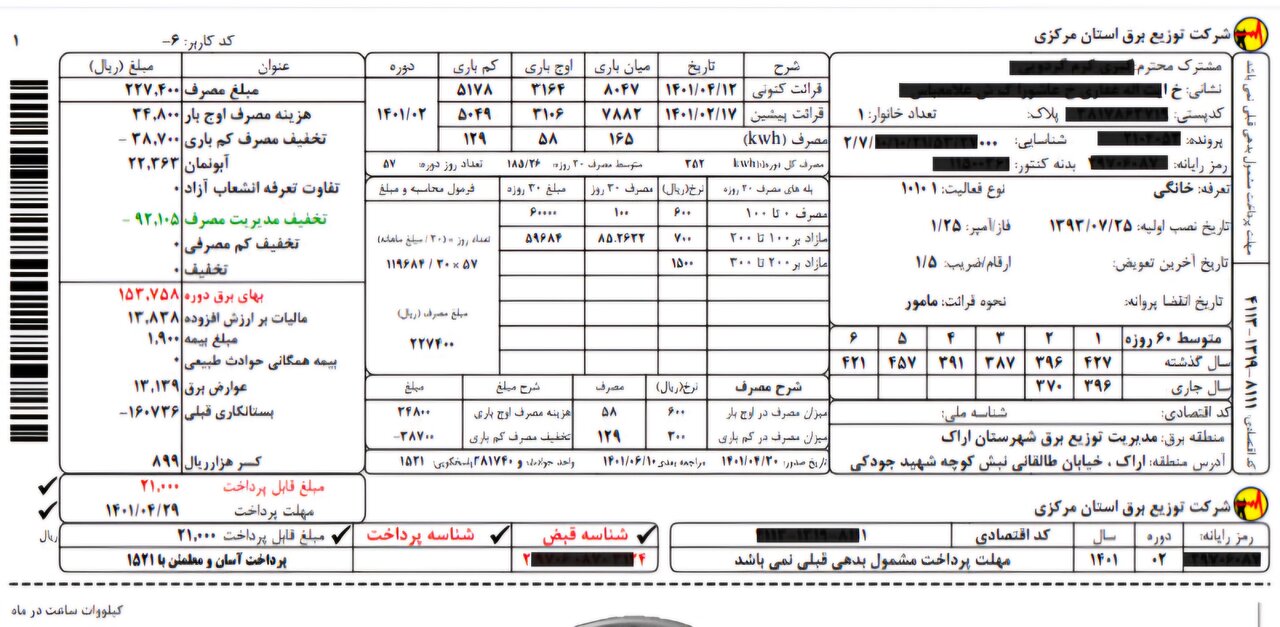 شرکت توزیع برق استان مرکزی
کد کاربر: ۶-
۱
مشترک محترم:
نشانی: خ
کدپستی: پلاک: تعداد خانوار: ۱
پرونده: شناسایی: ۲/۷/ ۰۰۰
رمز رایانه: بدنه کنتور:
تعرفه: خانگی نوع فعالیت: ۱۰۱۰۱
تاریخ نصب اولیه: ۱۳۹۳/۰۷/۲۵ فاز/آمپر: ۱/۲۵
تاریخ آخرین تعویض: ارقام/ضریب: ۱/۵
تاریخ انقضا پروانه: نحوه قرائت: مامور
متوسط ۶۰ روزه ۱ ۲ ۳ ۴ ۵ ۶
سال گذشته ۴۲۷ ۳۹۶ ۳۸۷ ۳۹۱ ۴۵۷ ۴۲۱
سال جاری ۳۹۶ ۳۷۰
کد اقتصادی: شناسه ملی:
منطقه برق: مدیریت توزیع برق شهرستان اراک
آدرس منطقه: اراک ، خیابان طالقانی نبش کوچه شهید جودکی
شرح تاریخ میان باری اوج باری کم باری دوره
قرائت کنونی ۱۴۰۱/۰۴/۱۲ ۸۰۴۷ ۳۱۶۴ ۵۱۷۸
قرائت پیشین ۱۴۰۱/۰۲/۱۷ ۷۸۸۲ ۳۱۰۶ ۵۰۴۹ ۱۴۰۱/۰۲
مصرف (kwh) ۱۶۵ ۵۸ ۱۲۹
مصرف کل دوره(kwh): ۳۵۲ متوسط مصرف ۳۰ روزه: ۱۸۵/۲۶ تعداد روز دوره: ۵۷
پله های مصرف ۳۰ روزه نرخ(ریال) مصرف ۳۰ روز مبلغ ۳۰ روزه فرمول محاسبه و مبلغ
مصرف ۰ تا ۱۰۰ ۶۰۰ ۱۰۰ ۶۰۰۰۰
مازاد بر ۱۰۰ تا ۲۰۰ ۷۰۰ ۸۵.۲۶۳۲ ۵۹۶۸۴ تعداد روز * (۳۰ / مبلغ ماهانه)
مازاد بر ۲۰۰ تا ۳۰۰ ۱۵۰۰ ۱۱۹۶۸۴ / ۳۰ × ۵۷
مبلغ مصرف (ریال)
۲۲۷۴۰۰
شرح مصرف نرخ(ریال) مصرف شرح مبلغ مبلغ
میزان مصرف در اوج بار ۶۰۰ ۵۸ هزینه مصرف اوج باری ۳۴۸۰۰
میزان مصرف در کم باری ۳۰۰ ۱۲۹ تخفیف مصرف کم باری ۳۸۷۰۰-
تاریخ صدور: ۱۴۰۱/۰۴/۲۰ مراجعه بعدی: ۱۴۰۱/۰۶/۱۰ واحد حوادث: ۳۸۱۷۴۰ پاسخگویی: ۱۵۲۱
عنوان مبلغ (ریال)
مبلغ مصرف ۲۲۷,۴۰۰
هزینه مصرف اوج بار ۳۴,۸۰۰
تخفیف مصرف کم باری ۳۸,۷۰۰ -
آبونمان ۲۲,۳۶۳
تفاوت تعرفه انشعاب آزاد ۰
تخفیف مدیریت مصرف ۹۲,۱۰۵ -
تخفیف کم مصرفی ۰
تخفیف ۰
بهای برق دوره ۱۵۳,۷۵۸
مالیات بر ارزش افزوده ۱۳,۸۳۸
مبلغ بیمه ۱,۹۰۰
بیمه همگانی حوادث طبیعی ۰
عوارض برق ۱۳,۱۳۹
بستانکاری قبلی ۱۶۰۷۳۶-
کسر هزار ریال ۸۹۹
مبلغ قابل پرداخت ۲۱,۰۰۰
مهلت پرداخت ۱۴۰۱/۰۴/۲۹
مهلت پرداخت مشمول بدهی قبلی نمی باشد
کد اقتصادی: ۸۱۱۱-۱۳۱۹-۴۱۱۳
شرکت توزیع برق استان مرکزی
رمز رایانه: دوره سال کد اقتصادی
۰۲ ۱۴۰۱ مهلت پرداخت مشمول بدهی قبلی نمی باشد
شناسه قبض شناسه پرداخت
مبلغ قابل پرداخت ۲۱,۰۰۰ ریال
پرداخت آسان و مطمئن با ۱۵۲۱
کیلووات ساعت در ماه